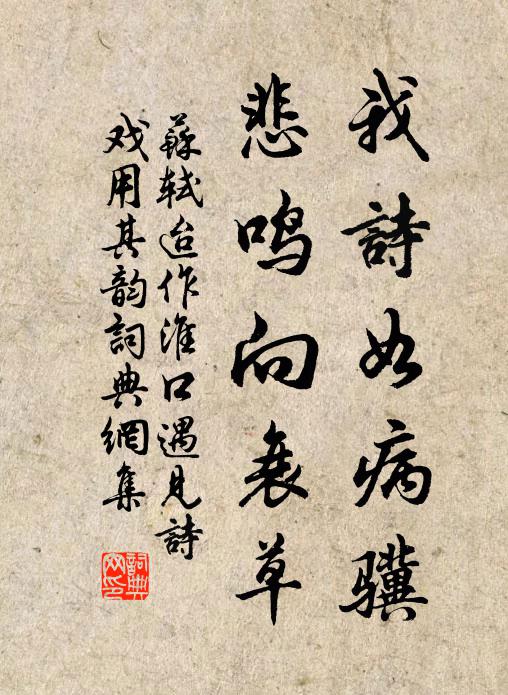 我詩如病驥
悲鳴向衰草
蘇軾迨作淮口遇見詩
戏用其韵詞典網集
詞典网印